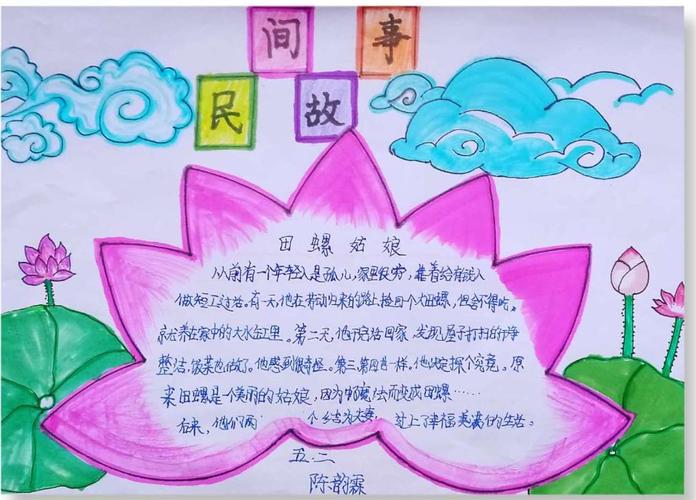 民间故事
田螺姑娘
从前有一个年轻人是孤儿,家里很穷,靠着给有钱人
做短工过活。有一天,他在劳动归来的路上捡回个大田螺,但舍不得吃,
就养在家中的大水缸里。第二天,他干活回家,发现屋子打扫的干净
整洁,饭菜也做了。他感到很奇怪。第三、第四也一样。他决定探个究竟。原
来田螺是一个美丽的姑娘,因为中魔法而变成田螺……
后来,他们两个结为夫妻 过上了幸福美满的生活。
五.二
陈韵霖